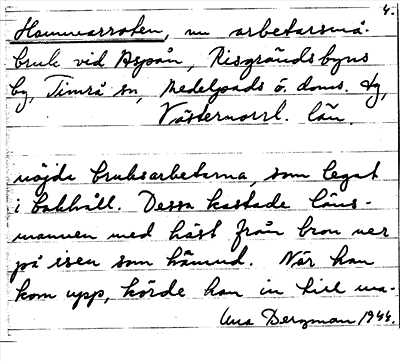 4.
Hammarroten, nu arbetarsmå-
bruk vid Aspån, Risgrändsbyns
by, Timrå sn, Medelpads ö. doms. dg,
Västernorrl. län.
nöjda bruksarbetarna, som legat
i bakhåll. Dessa kastade läns-
mannen med häst från bron ner
på isen som hämnd. När han
kom upp, körde han in till ma-
Una Bergman 1944.